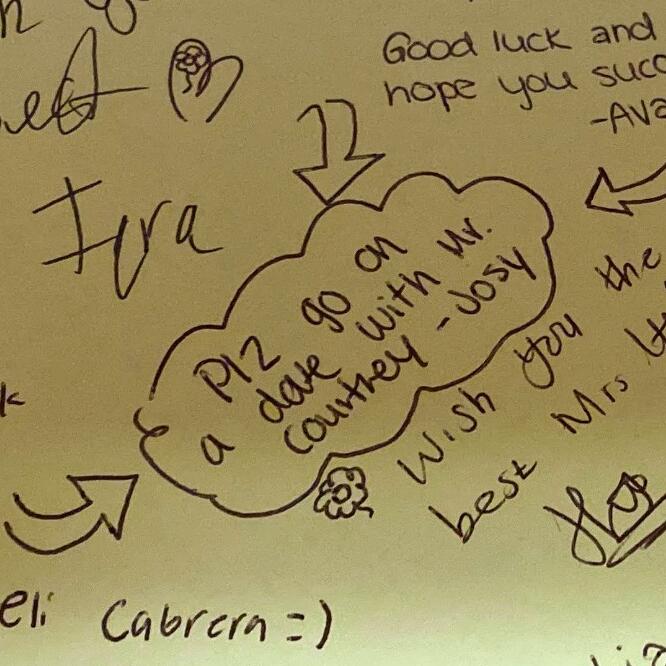 Good luck and
hope you succ
-Ava
Iqra
Plz go on
a date with Mr.
Courtney -Josy
Wish you the
best Mrs
eli Cabrera =)